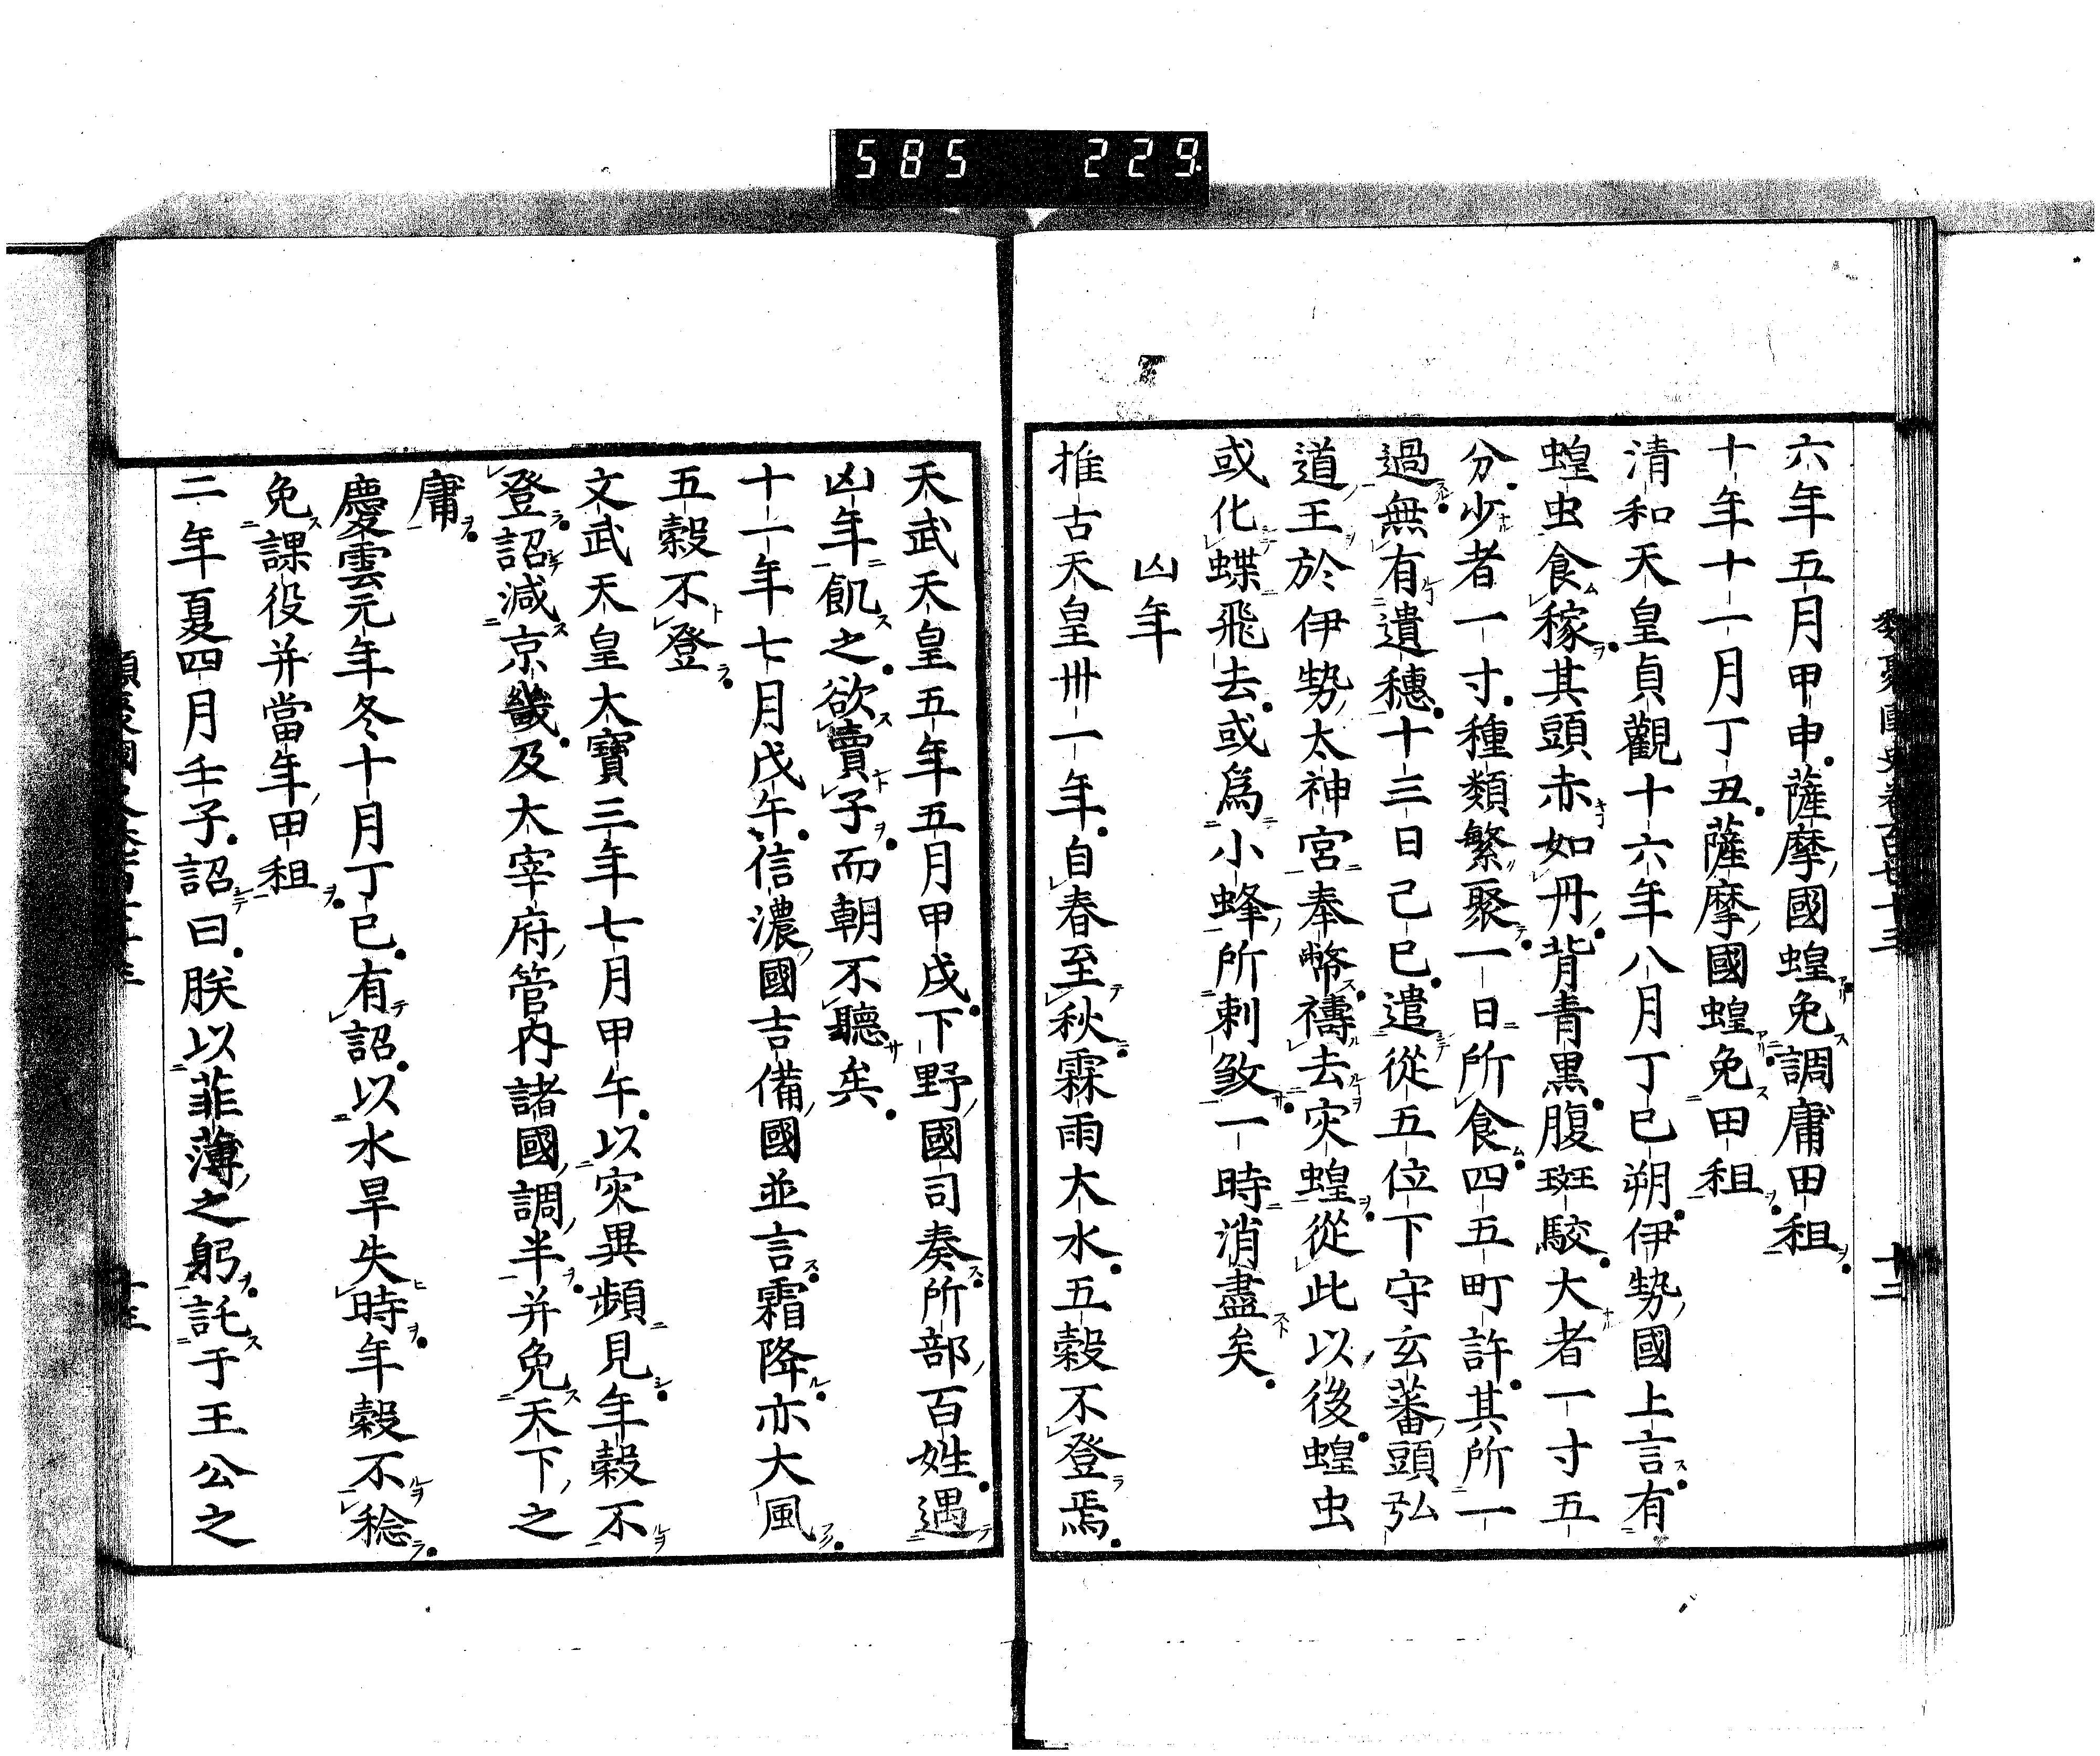 585 229
類聚國史卷百七十三 十二
六年五月甲申薩摩國蝗免調庸田租
十年十一月丁丑薩摩國蝗免田租
清和天皇貞觀十六年八月丁巳朔伊勢國上言有
蝗虫食稼其頭赤如丹背青黒腹斑駮大者一寸五
分少者一寸種類繁聚一日所食四五町許其所一
過無有遺穗十三日己巳遣從五位下守玄蕃頭弘
道王於伊勢太神宮奉幣禱去灾蝗從此以後蝗虫
或化蝶飛去或爲小蜂所刺敛一時消盡矣
凶年
推古天皇卅一年自春至秋霖雨大水五穀不登焉
天武天皇五年五月甲戌下野國司奏所部百姓遇
凶年飢之欲賣子而朝不聽矣
十一年七月戊午信濃國吉備國並言霜降亦大風
五穀不登
文武天皇大寶三年七月甲午以灾異頻見年穀不
登詔減京畿及大宰府管内諸國調半并免天下之
庸
慶雲元年冬十月丁巳有詔以水旱失時年穀不稔
免課役并當年田租
二年夏四月壬子詔曰朕以菲薄之躬託于王公之